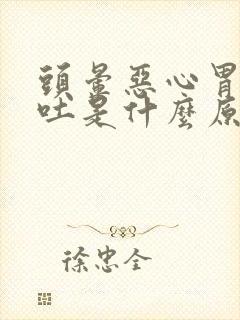 頭暈惡心胃
吐是什麼原
徐忠全